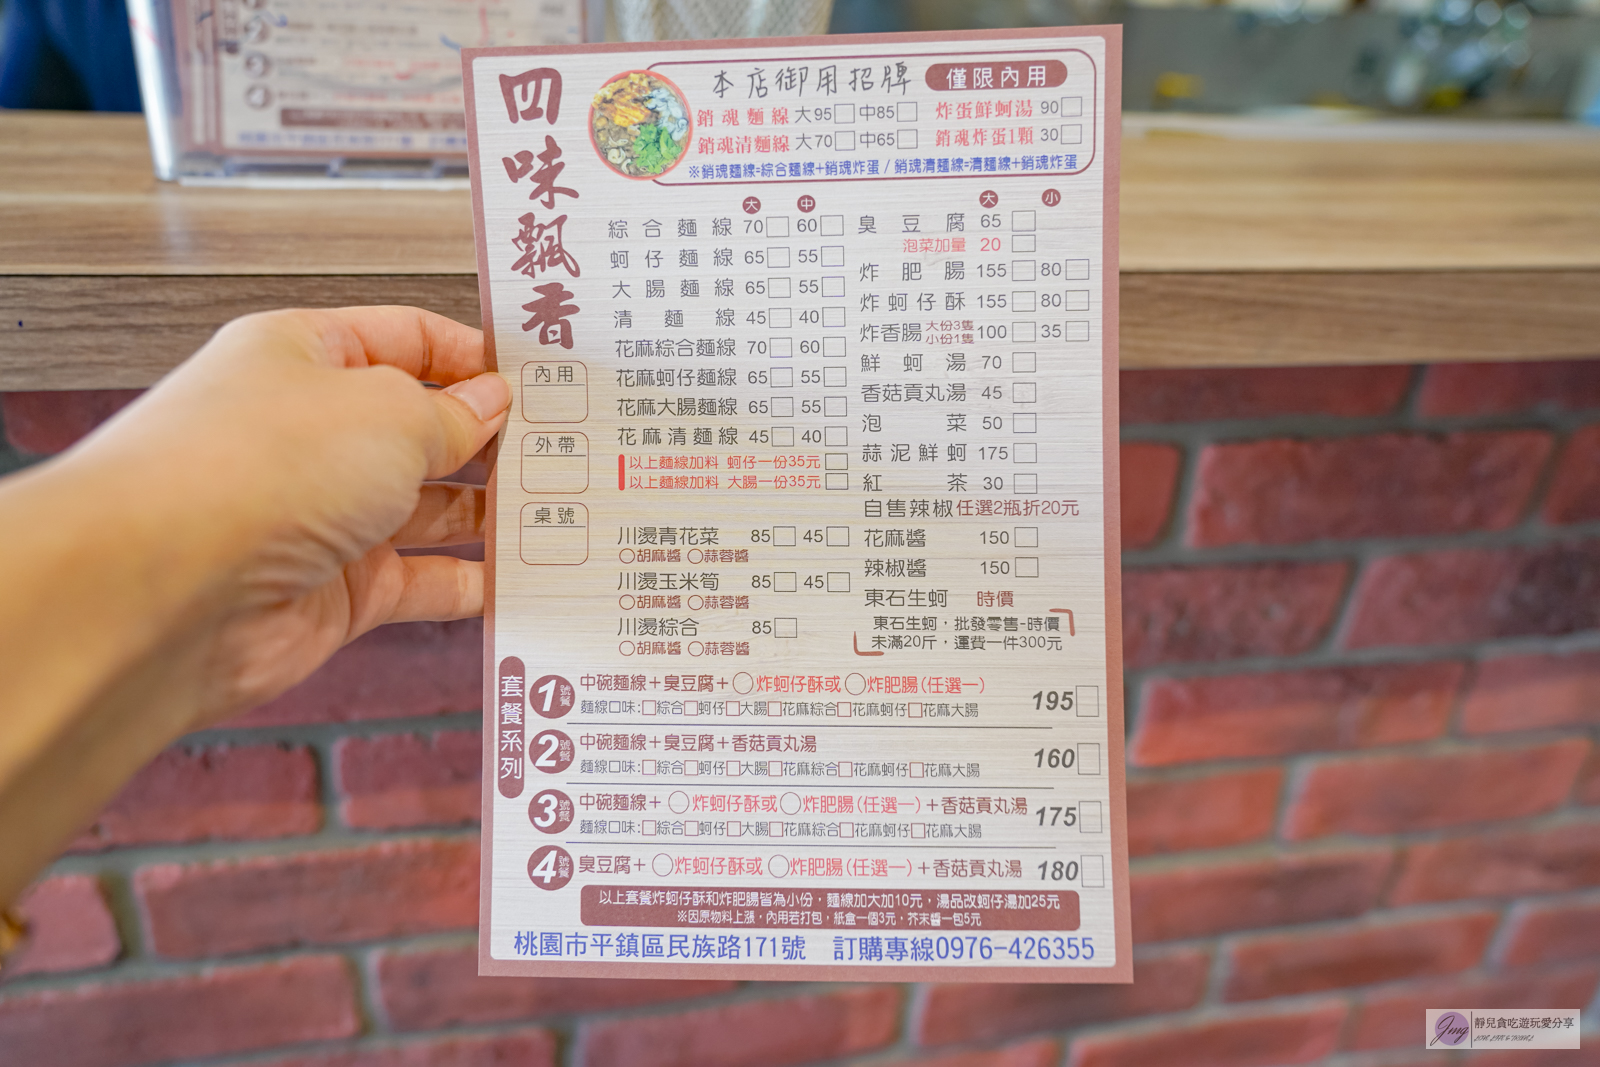 四味飄香
本店御用招牌 僅限內用
銷魂麵線 大95□ 中85□ 炸蛋鮮蚵湯 90□
銷魂清麵線 大70□ 中65□ 銷魂炸蛋1顆 30□
※銷魂麵線=綜合麵線+銷魂炸蛋 / 銷魂清麵線=清麵線+銷魂炸蛋
大 中
綜合麵線 70□ 60□
蚵仔麵線 65□ 55□
大腸麵線 65□ 55□
清麵線 45□ 40□
花麻綜合麵線 70□ 60□
花麻蚵仔麵線 65□ 55□
花麻大腸麵線 65□ 55□
花麻清麵線 45□ 40□
以上麵線加料 蚵仔一份35元□
以上麵線加料 大腸一份35元□
川燙青花菜 85□ 45□
○胡麻醬 ○蒜蓉醬
川燙玉米筍 85□ 45□
○胡麻醬 ○蒜蓉醬
川燙綜合 85□
○胡麻醬 ○蒜蓉醬
大 小
臭豆腐 65□
泡菜加量 20□
炸肥腸 155□ 80□
炸蚵仔酥 155□ 80□
炸香腸 大份3隻 小份1隻 100□ 35□
鮮蚵湯 70□
香菇貢丸湯 45□
泡菜 50□
蒜泥鮮蚵 175□
紅茶 30□
自售辣椒任選2瓶折20元
花麻醬 150□
辣椒醬 150□
東石生蚵 時價
東石生蚵，批發零售-時價
未滿20斤，運費一件300元
內用
外帶
桌號
套餐系列
1號餐 中碗麵線+臭豆腐+○炸蚵仔酥或○炸肥腸(任選一) 195□
麵線口味:□綜合□蚵仔□大腸□花麻綜合□花麻蚵仔□花麻大腸
2號餐 中碗麵線+臭豆腐+香菇貢丸湯 160□
麵線口味:□綜合□蚵仔□大腸□花麻綜合□花麻蚵仔□花麻大腸
3號餐 中碗麵線+○炸蚵仔酥或○炸肥腸(任選一)+香菇貢丸湯 175□
麵線口味:□綜合□蚵仔□大腸□花麻綜合□花麻蚵仔□花麻大腸
4號餐 臭豆腐+○炸蚵仔酥或○炸肥腸(任選一)+香菇貢丸湯 180□
以上套餐炸蚵仔酥和炸肥腸皆為小份，麵線加大加10元，湯品改蚵仔湯加25元
※因原物料上漲，內用若打包，紙盒一個3元，芥末醬一包5元
桃園市平鎮區民族路171號 訂購專線0976-426355
Jing
靜兒貪吃遊玩愛分享